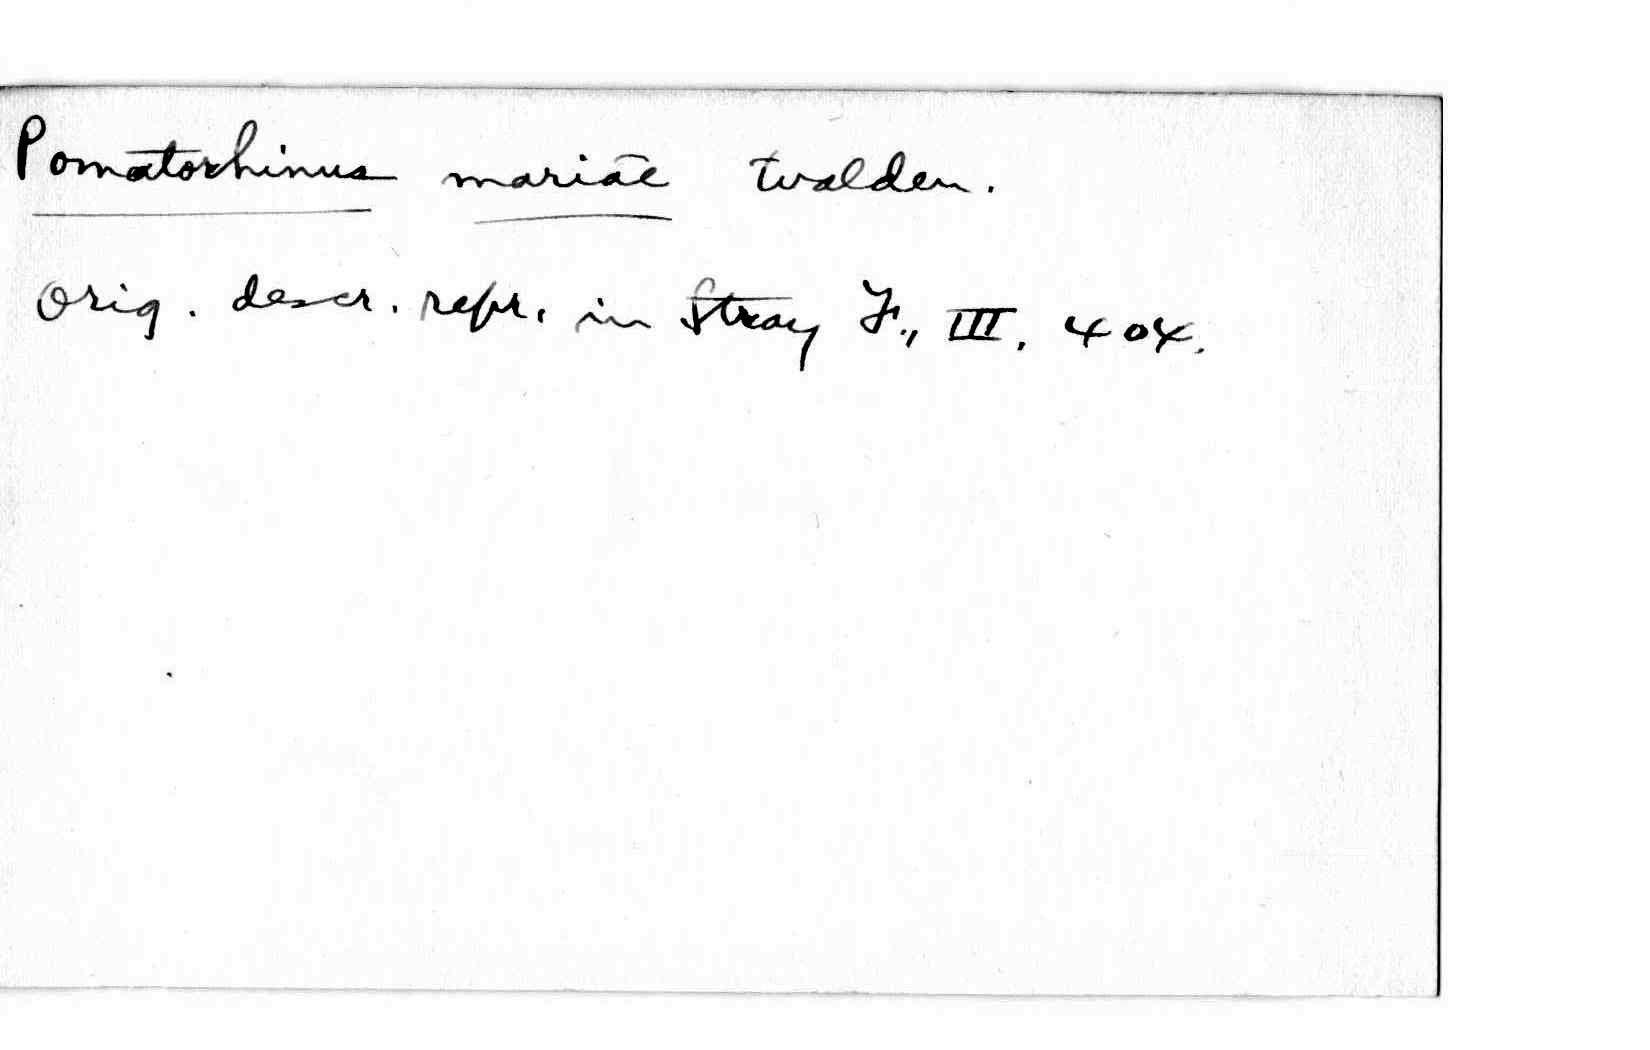 Pomatorhinus mariae Walden.
Orig. descr. repr. in Stray F., III, 404.